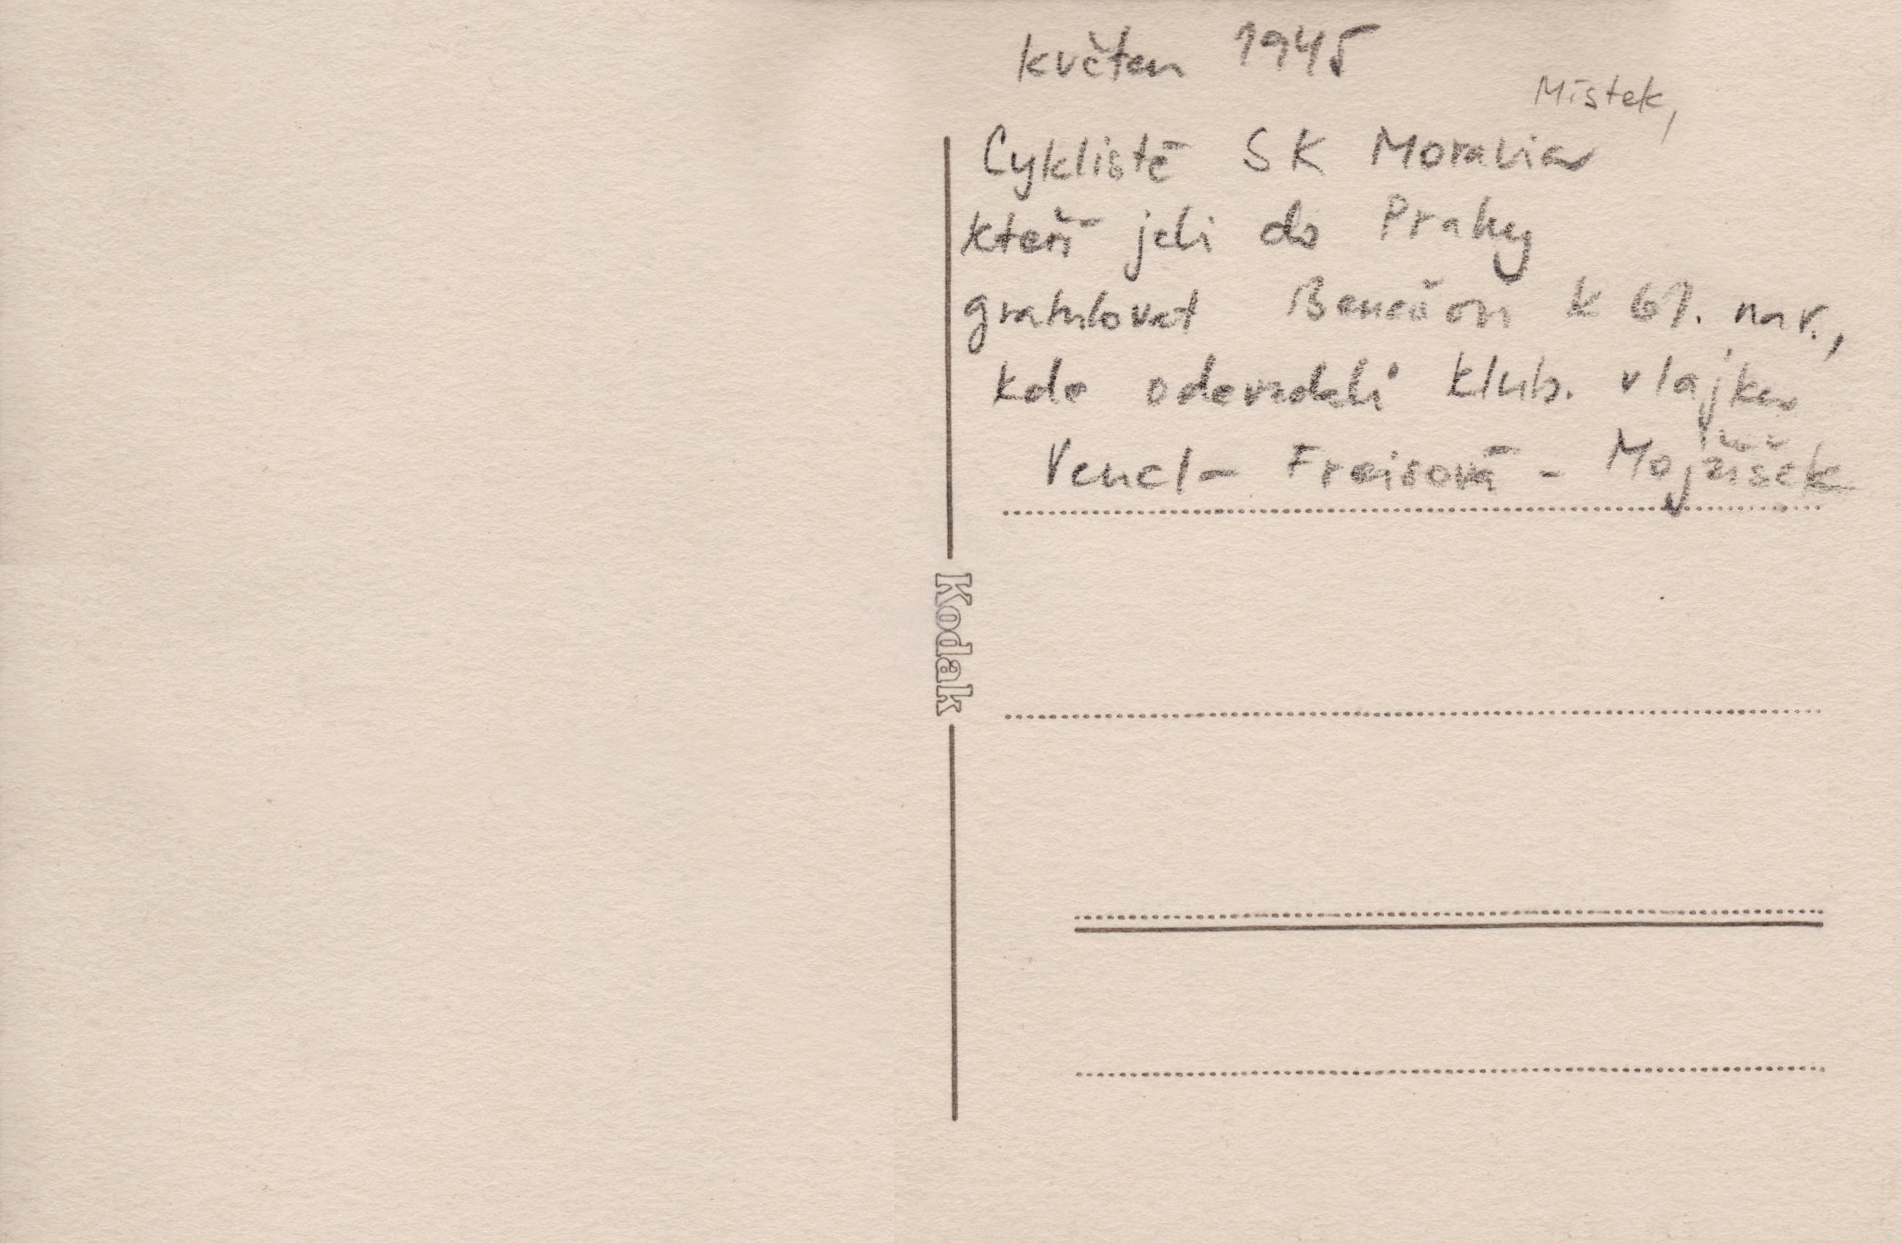 květen 1945
Místek,
Cyklisté SK Moravia
kteří jeli do Prahy
gratulovat Benešovi k 61. nar.,
kde odevzdali klub. vlajku
Vencl - Freisová - Mojžíšek
Kodak